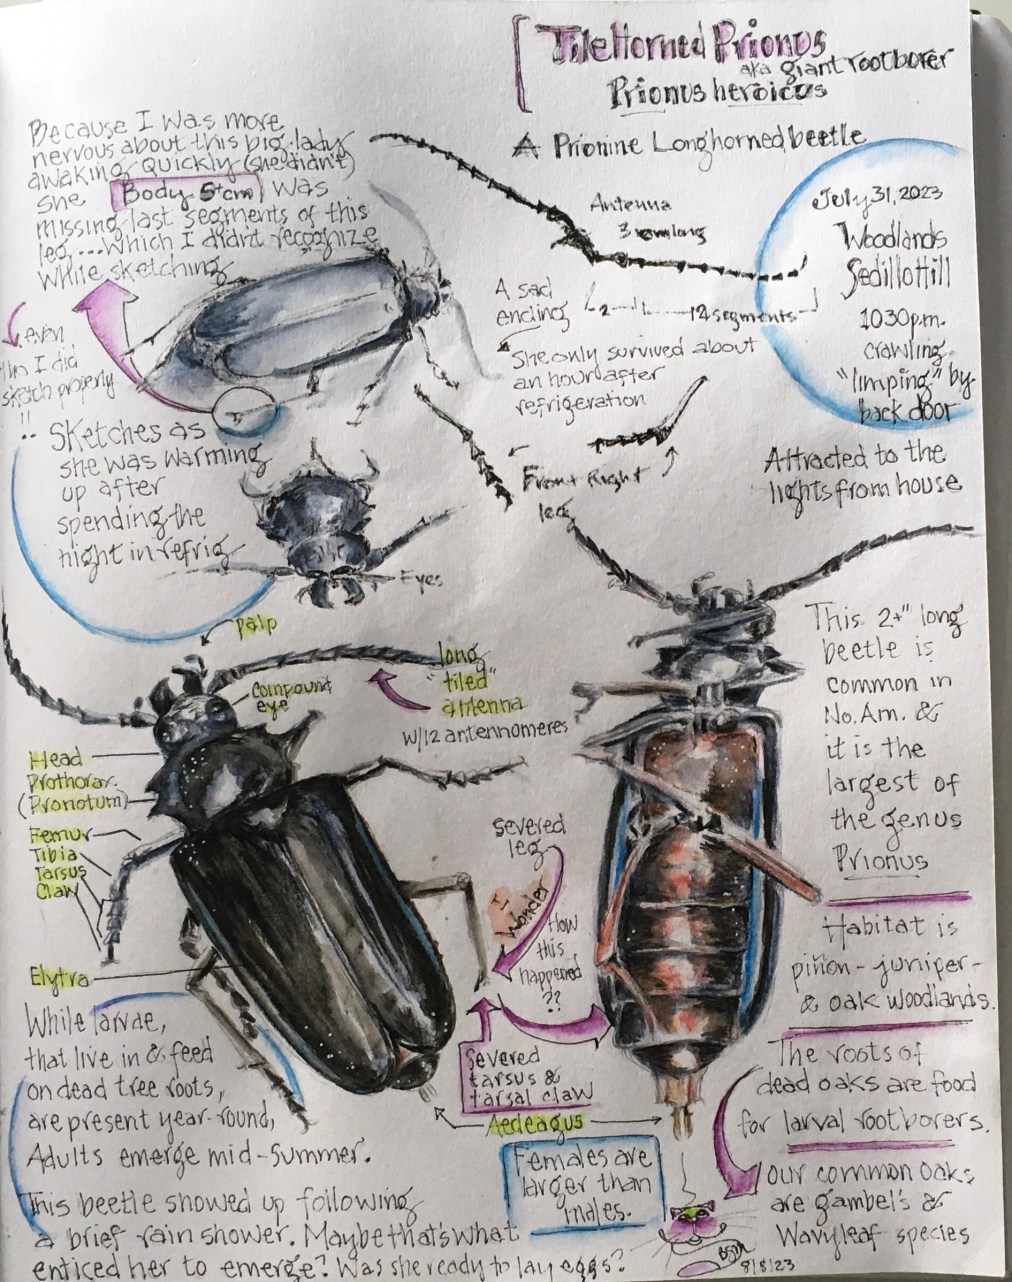 Tile Horned Prionus
aka giant rootborer
Prionus heroicus
A Prionine Longhorned beetle
Because I was more
nervous about this big lady
awaking quickly (she didn't)
she Body 5+cm) was
missing last segments of this
leg...which I didn't recognize
while sketching
even
tho I did
sketch properly
!!
Antenna
3 cm long
2 1 12 segments
A sad
ending
She only survived about
an hour after
refrigeration
July 31, 2023
Woodlands
Sedillo Hill
1030p.m.
crawling
"limping" by
back door
Attracted to the
lights from house
Sketches as
she was warming
up after
spending the
night in refrig
Front Right
leg
Eyes
palp
compound
eye
long
"tiled"
antenna
w/12 antennomeres
Head
Prothorax
(Pronotum)
Femur
Tibia
Tarsus
Claw
Elytra
severed
leg
I
wonder
How
this
happened
??
Severed
tarsus &
tarsal claw
Aedeagus
Females are
larger than
males.
This 2+" long
beetle is
common in
No. Am. &
it is the
largest of
the genus
Prionus
Habitat is
piñon-juniper-
& oak woodlands.
The roots of
dead oaks are food
for larval rootborers.
Our common oaks
are gambel's &
Wavyleaf species
While larvae,
that live in & feed
on dead tree roots,
are present year-round,
Adults emerge mid-summer.
This beetle showed up following
a brief rain shower. Maybe that's what
enticed her to emerge? Was she ready to lay eggs?
8/8/23